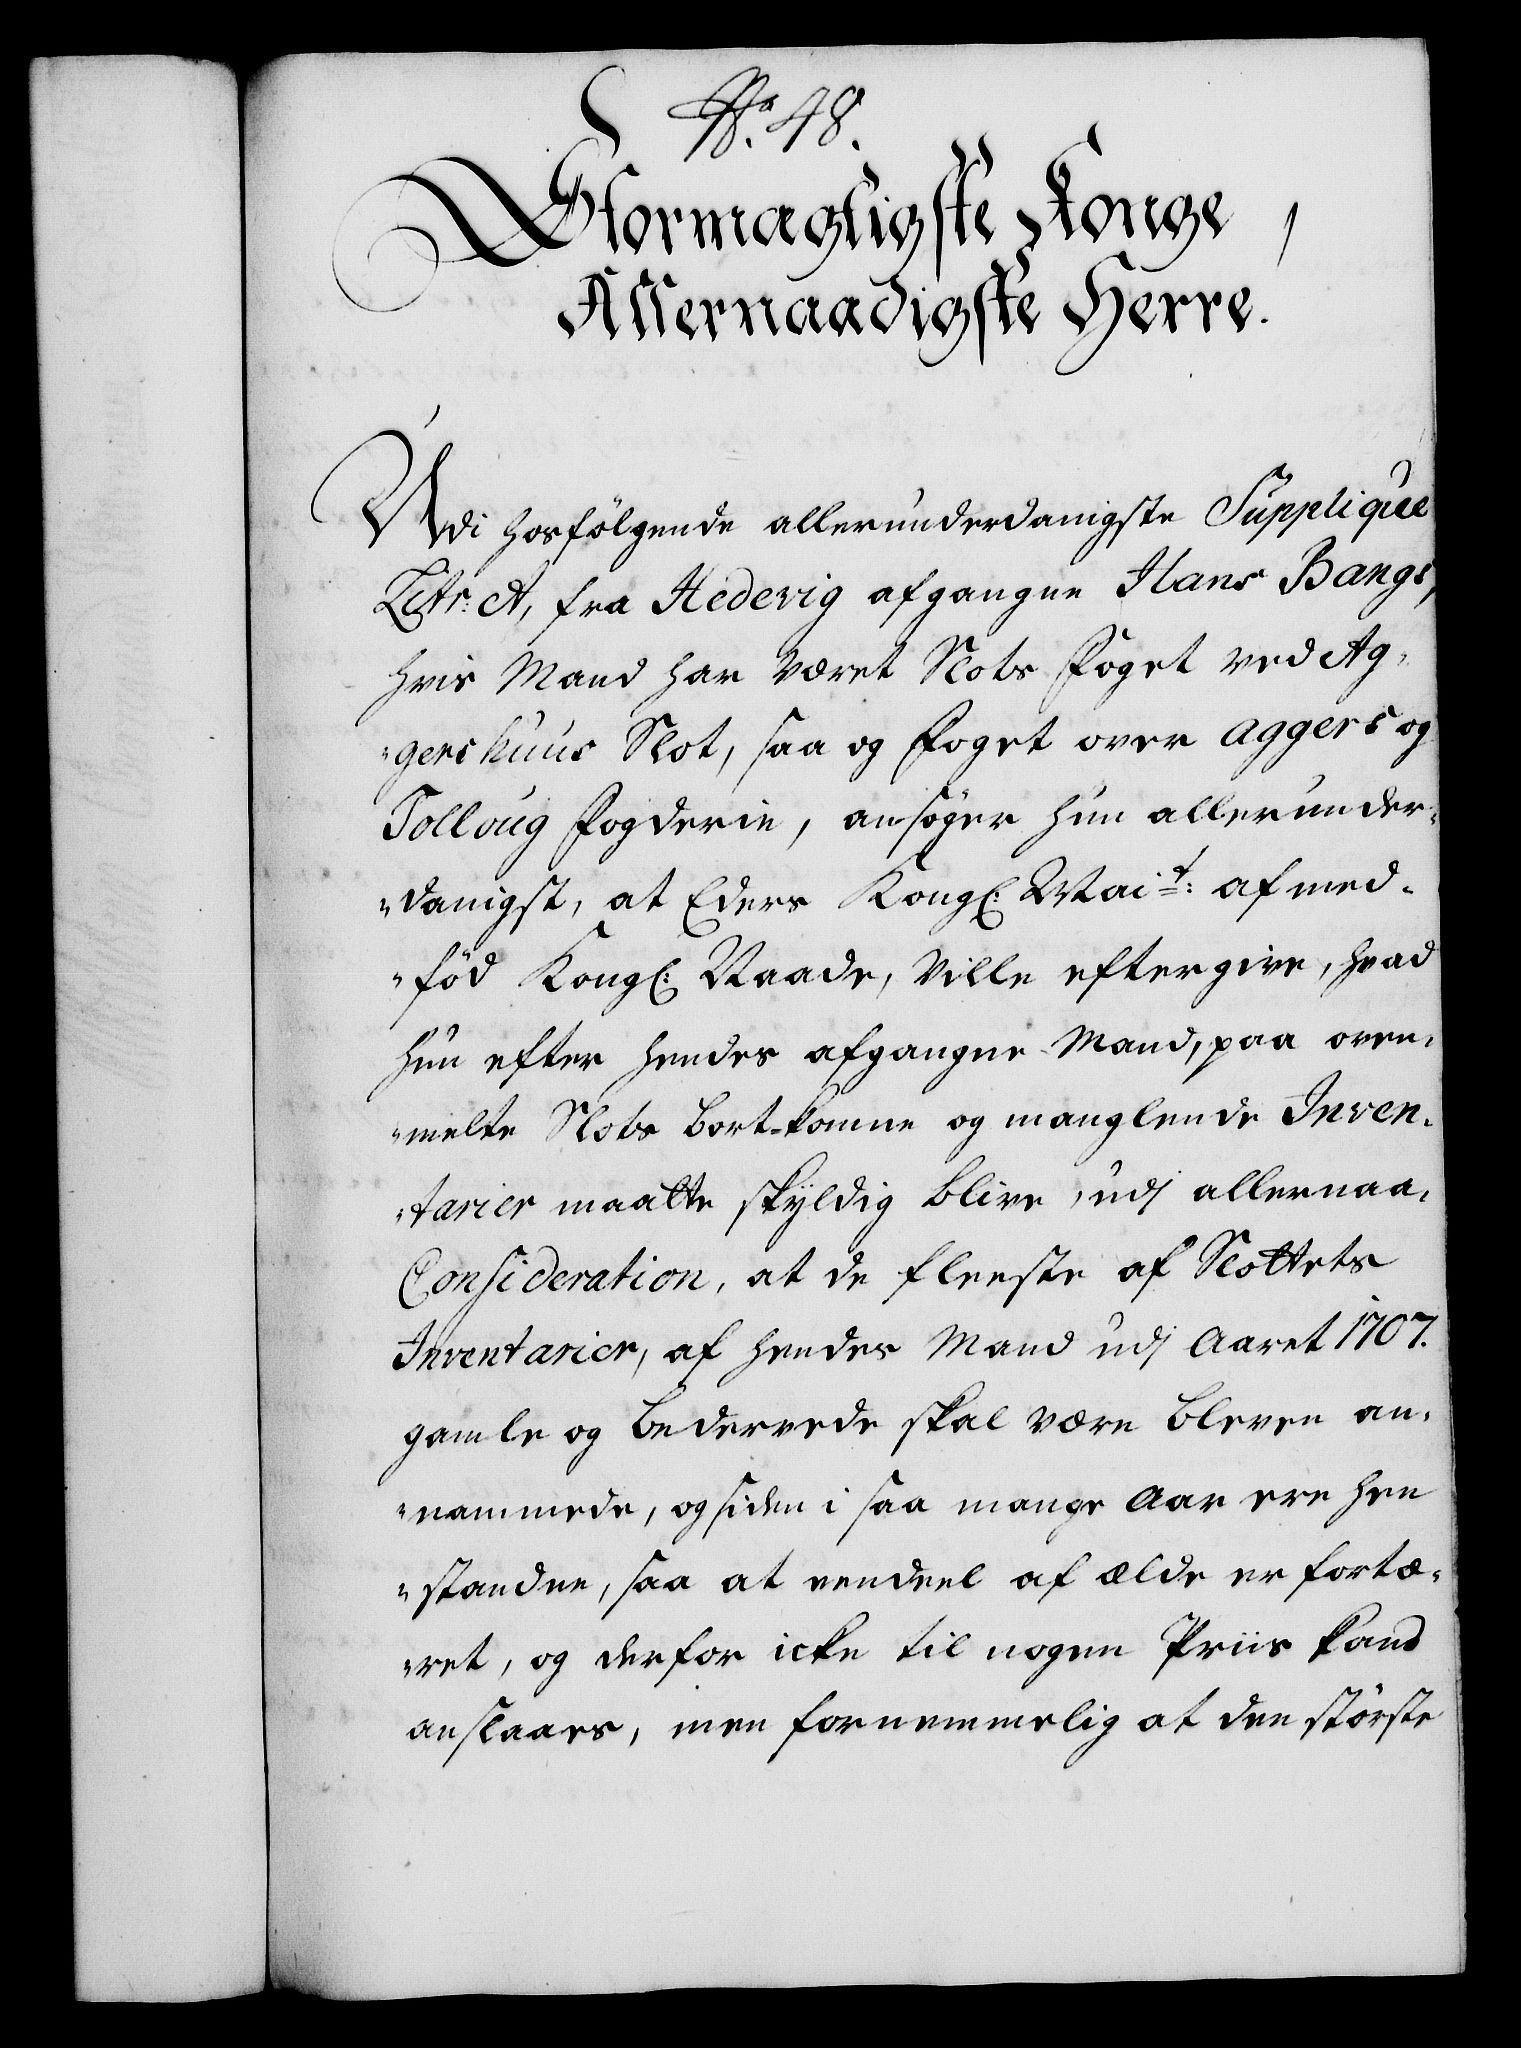 No. 48.
Stormægtigste Konge,
Allernaadigste Herre.
Udi hosfölgende allerunderdanigste Supplique
Litr: A, fra Hedevig afgangne Hans Bangs,
hvis Mand har været Slots Foget ved Ag-
"gershuus Slot, saa og Foget over Aggers og
Tolloug Fogderie, ansöger hun allerunder-
"danigst, at Eders Kongl: Mait: af med-
"föd Kongl: Naade, Ville eftergive, hvad
hun efter hendes afgangne Mand, paa oven-
"melte Slots bort-komne og manglende Inven-
"tarier maatte skÿldig blive, udj allernaa-
Consideration, at de fleeste af Slottets
Inventarier, af hendes Mand udj Aaret 1707.
gamle og bedervede skal være bleven an-
"nammede, og siden i saa mange Aar ere hen
"standne, saa at eendeel af ælde er fortæ-
"ret, og derfor icke til nogen Priis kand
anslaaes, men fornemmelig at den störste